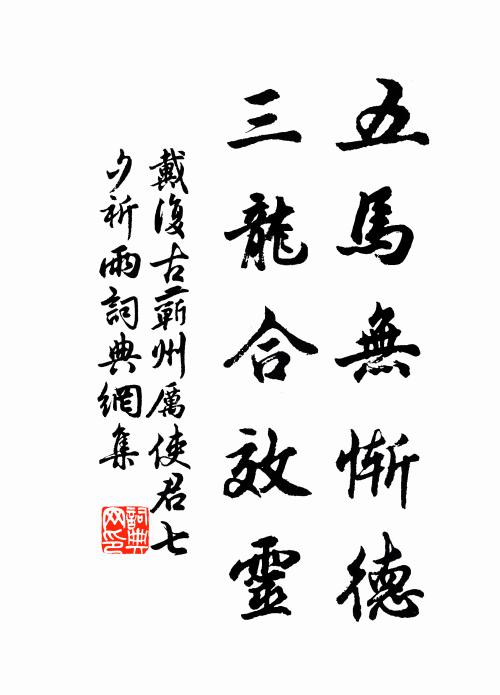 五馬無慚德
三龍合效靈
戴復古蘄州厲使君七
夕祈雨詞典網集
詞典
网印